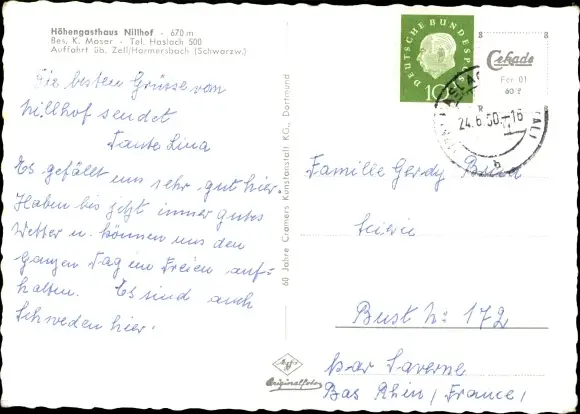 Höhengasthaus Nillhof - 670 m
Bes. K. Moser - Tel. Haslach 500
Auffahrt üb. Zell/Harmersbach (Schwarzw.)
Die besten Grüsse vom
Nillhof sendet
Tante Lina
Es gefällt uns sehr gut hier.
Haben bis jetzt immer gutes
Wetter u. können uns den
ganzen Tag im Freien auf=
halten. Es sind auch
Schweden hier.
60 Jahre Cramers Kunstanstalt KG., Dortmund
Originalfoto
DEUTSCHE BUNDESPOST
10
Cekade
For 01
60 P
24.6.60.-16
b
Famille Gerdy
Scierie
Bust N: 172
par Saverne
Bas Rhin, (France)